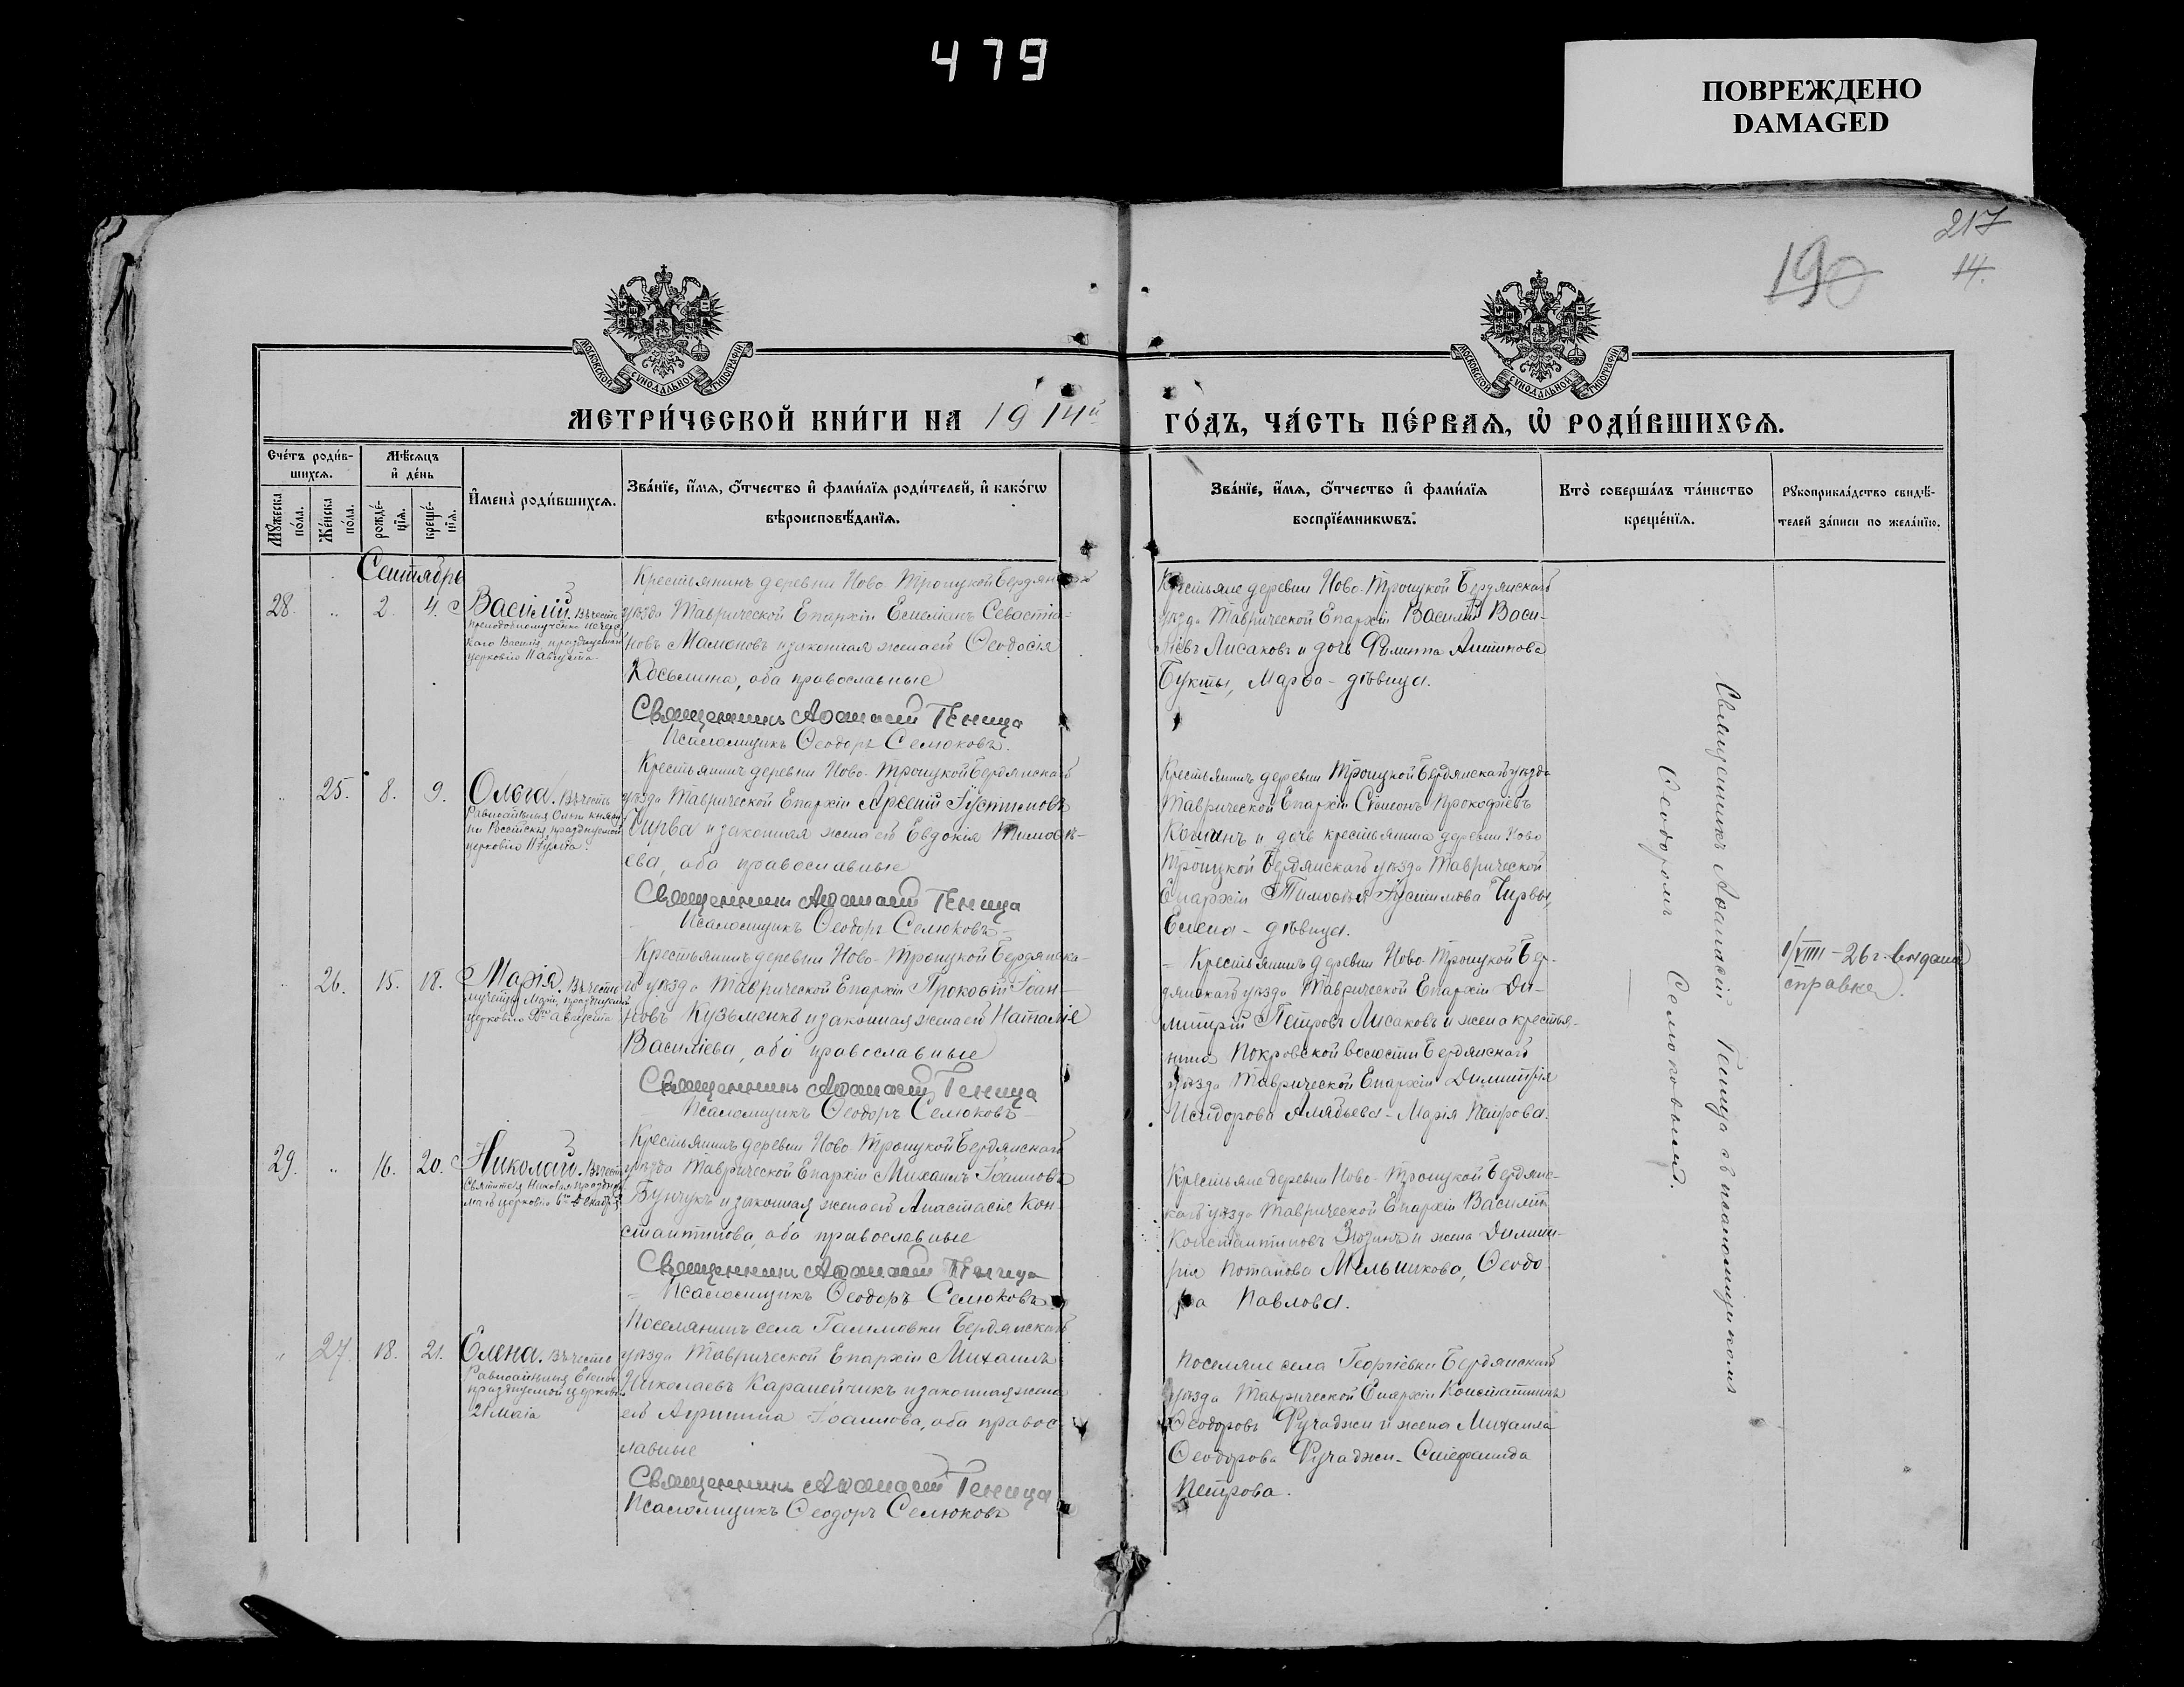 479
ПОВРЕЖДЕНО
DAMAGED
217
190
14.
МОСКОВСКОЙ СѴНОДАЛЬНОЙ ТИПОГРАФІИ
МОСКОВСКОЙ СѴНОДАЛЬНОЙ ТИПОГРАФІИ
МЕТРИ́ЧЕСКОЙ КНИ́ГИ НА 1914й
ГО́ДЪ, ЧА́СТЬ ПЕ́РВАѦ, Ѡ҆ РОДИ́ВШИХСѦ.
Сче́тъ роди́в-
шихсѧ.
Мѣ́сѧцъ
и҆ де́нь
Мꙋ́жеска
по́ла.
Же́нска
по́ла.
рожде́-
нїѧ.
креще́-
нїѧ.
И҆мена̀ роди́вшихсѧ.
Зва́нїе, и҆́мѧ, ѻ҆́тчество и҆ фами́лїѧ роди́телей, и҆ како́гѡ
вѣроисповѣ́данїѧ.
Зва́нїе, и҆́мѧ, ѻ҆́тчество и҆ фами́лїѧ
воспрїе́мникѡвъ.
Кто̀ соверша́лъ та́инство
креще́нїѧ.
Рꙋкоприкла́дство свидѣ́-
телей за́писи по жела́нїю.
Сентябрь
28. „ 2. 4.
Василій. Въ честь
преподобномученика
Василія, празднуемаго
церковію 11 Августа.
Крестьянинъ деревни Ново-Троицкой Бердянскаго
уѣзда Таврической Епархіи Емеліанъ Севастіа-
новъ Мамоновъ и законная жена его Ѳеодосія
Косьмина, оба православные
Священникъ Аѳанасій Геница
Псаломщикъ Ѳеодоръ Селюковъ.
Крестьяне деревни Ново-Троицкой Бердянскаго
уѣзда Таврической Епархіи Василій Васи-
ліевъ Лисаковъ и дочь Филиппа Антипова
Букты, Марѳа - дѣвица.
„ 25. 8. 9.
Ольга. Въ честь
Равноапостольныя Ольги княги-
ни Россійскія, празднуемой
церковію 11 Іюля.
Крестьянинъ деревни Ново-Троицкой Бердянскаго
уѣзда Таврической Епархіи Арсеній Іустиновъ
Чирва и законная жена его Евдокія Тимоѳе-
ева, оба православные
Священникъ Аѳанасій Геница
Псаломщикъ Ѳеодоръ Селюковъ
Крестьянинъ деревни Троицкой Бердянскаго уѣзда
Таврической Епархіи Сѵмеонъ Прокофіевъ
и дочь крестьянина деревни Ново
Троицкой Бердянскаго уѣзда Таврической
Епархіи Тимоѳея Іустинова Чирвы,
Елена - дѣвица.
„ 26. 15. 18.
Марія. Въ честь
мученицы Маріи, празднуемой
церковію Августа
Крестьянинъ деревни Ново-Троицкой Бердянска-
го уѣзда Таврической Епархіи Прокопій Іоан-
новъ Кузьменко и законная жена его Наталія
Василіева, оба православные
Священникъ Аѳанасій Геница
Псаломщикъ Ѳеодоръ Селюковъ
Крестьянинъ деревни Ново-Троицкой Бер-
дянскаго уѣзда Таврической Епархіи Ди-
митрій Петровъ Лисаковъ и жена крестья-
нина Покровской волости Бердянскаго
уѣзда Таврической Епархіи Димитрія
Исидорова Алябьева - Марія Петрова.
1/VIII - 26 г. выдана
справка.
29. „ 16. 20.
Николай. Въ честь
Святителя Николая празднуе-
маго церковію 6го Декабря
Крестьянинъ деревни Ново-Троицкой Бердянскаго
уѣзда Таврической Епархіи Михаилъ Іоанновъ
Бунчукъ и законная жена его Анастасія Кон-
стантинова, оба православные
Священникъ Аѳанасій Геница
Псаломщикъ Ѳеодоръ Селюковъ
Крестьяне деревни Ново-Троицкой Бердянс-
каго уѣзда Таврической Епархіи Василій
Константиновъ Зюзинъ и жена Димит-
рія Потапова Мельникова, Ѳеодо-
ра Павлова.
„ 27. 18. 21.
Елена. Въ честь
Равноапостольныя Елены
празднуемой церковію
21 Маія
Поселянинъ села Бердянскаго
уѣзда Таврической Епархіи Михаилъ
Николаевъ Карапейчикъ и законная жена
его Агриппина Іоаннова, оба правос-
лавные
Священникъ Аѳанасій Геница
Псаломщикъ Ѳеодоръ Селюковъ
Поселяне села Георгіевки Бердянскаго
уѣзда Таврической Епархіи Константинъ
Ѳеодоровъ Фучаджи и жена Михаила
Ѳеодорова Фучаджи - Стефанида
Петрова.
Священникъ Аѳанасій Геница съ псаломщикомъ
Ѳеодоромъ Селюковымъ.